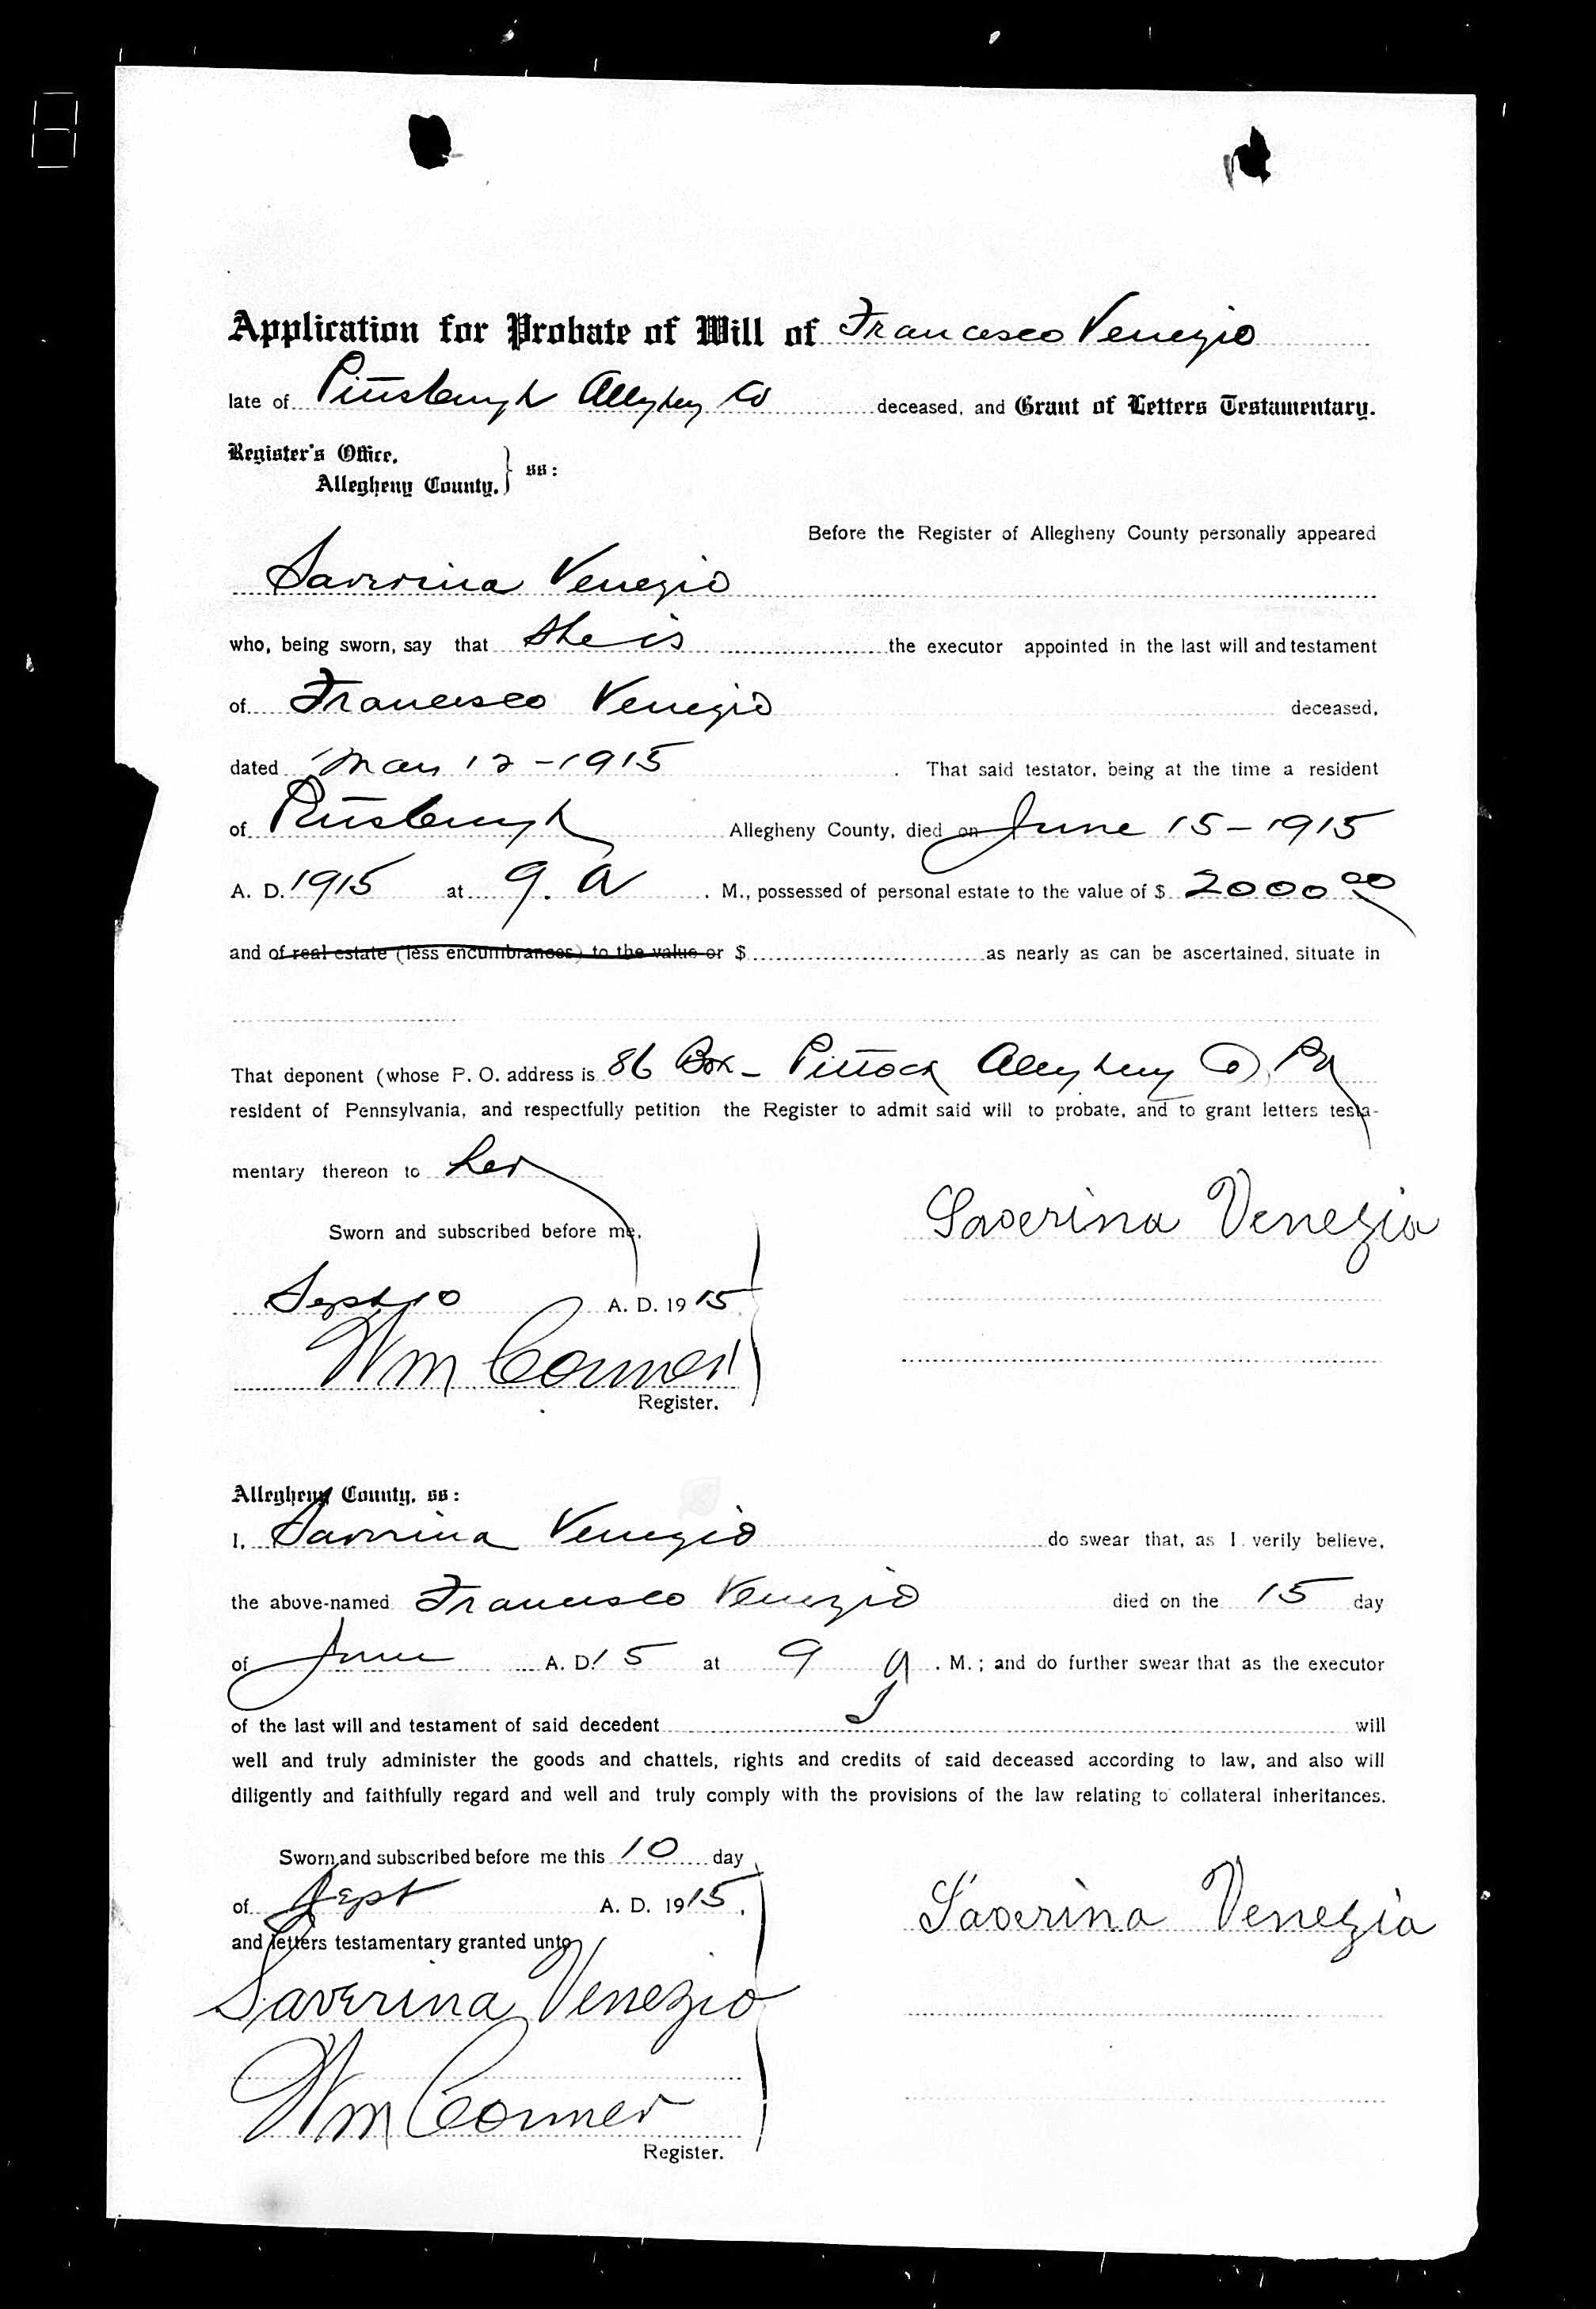 Application for Probate of Will of Francesco Venezio
late of Pittsburgh Allegheny Co deceased, and Grant of Letters Testamentary.
Register's Office,
Allegheny County, } ss:
Before the Register of Allegheny County personally appeared
Saverina Venezio
who, being sworn, say that she is the executor appointed in the last will and testament
of Francesco Venezio deceased,
dated 12-1915 . That said testator, being at the time a resident
of Pittsburgh Allegheny County, died on June 15-1915
A. D. 1915 at 9. A . M., possessed of personal estate to the value of $ 2000 00
and of real estate (less encumbrances) to the value or $ as nearly as can be ascertained, situate in
That deponent (whose P. O. address is 86 Box - Pittock Allegheny Co, Pa
resident of Pennsylvania, and respectfully petition the Register to admit said will to probate, and to grant letters testa-
mentary thereon to her
Sworn and subscribed before me,
Saverina Venezia
Sept 10 A. D. 1915
Wm Conner
Register.
Allegheny County, ss:
I, Saverina Venezio do swear that, as I verily believe,
the above-named Francesco Venezio died on the 15 day
of June A. D. 15 at 9 a . M.; and do further swear that as the executor
of the last will and testament of said decedent I will
well and truly administer the goods and chattels, rights and credits of said deceased according to law, and also will
diligently and faithfully regard and well and truly comply with the provisions of the law relating to collateral inheritances.
Sworn and subscribed before me this 10 day
of Sept A. D. 1915,
Saverina Venezia
and letters testamentary granted unto
Saverina Venezio
Wm Conner
Register.